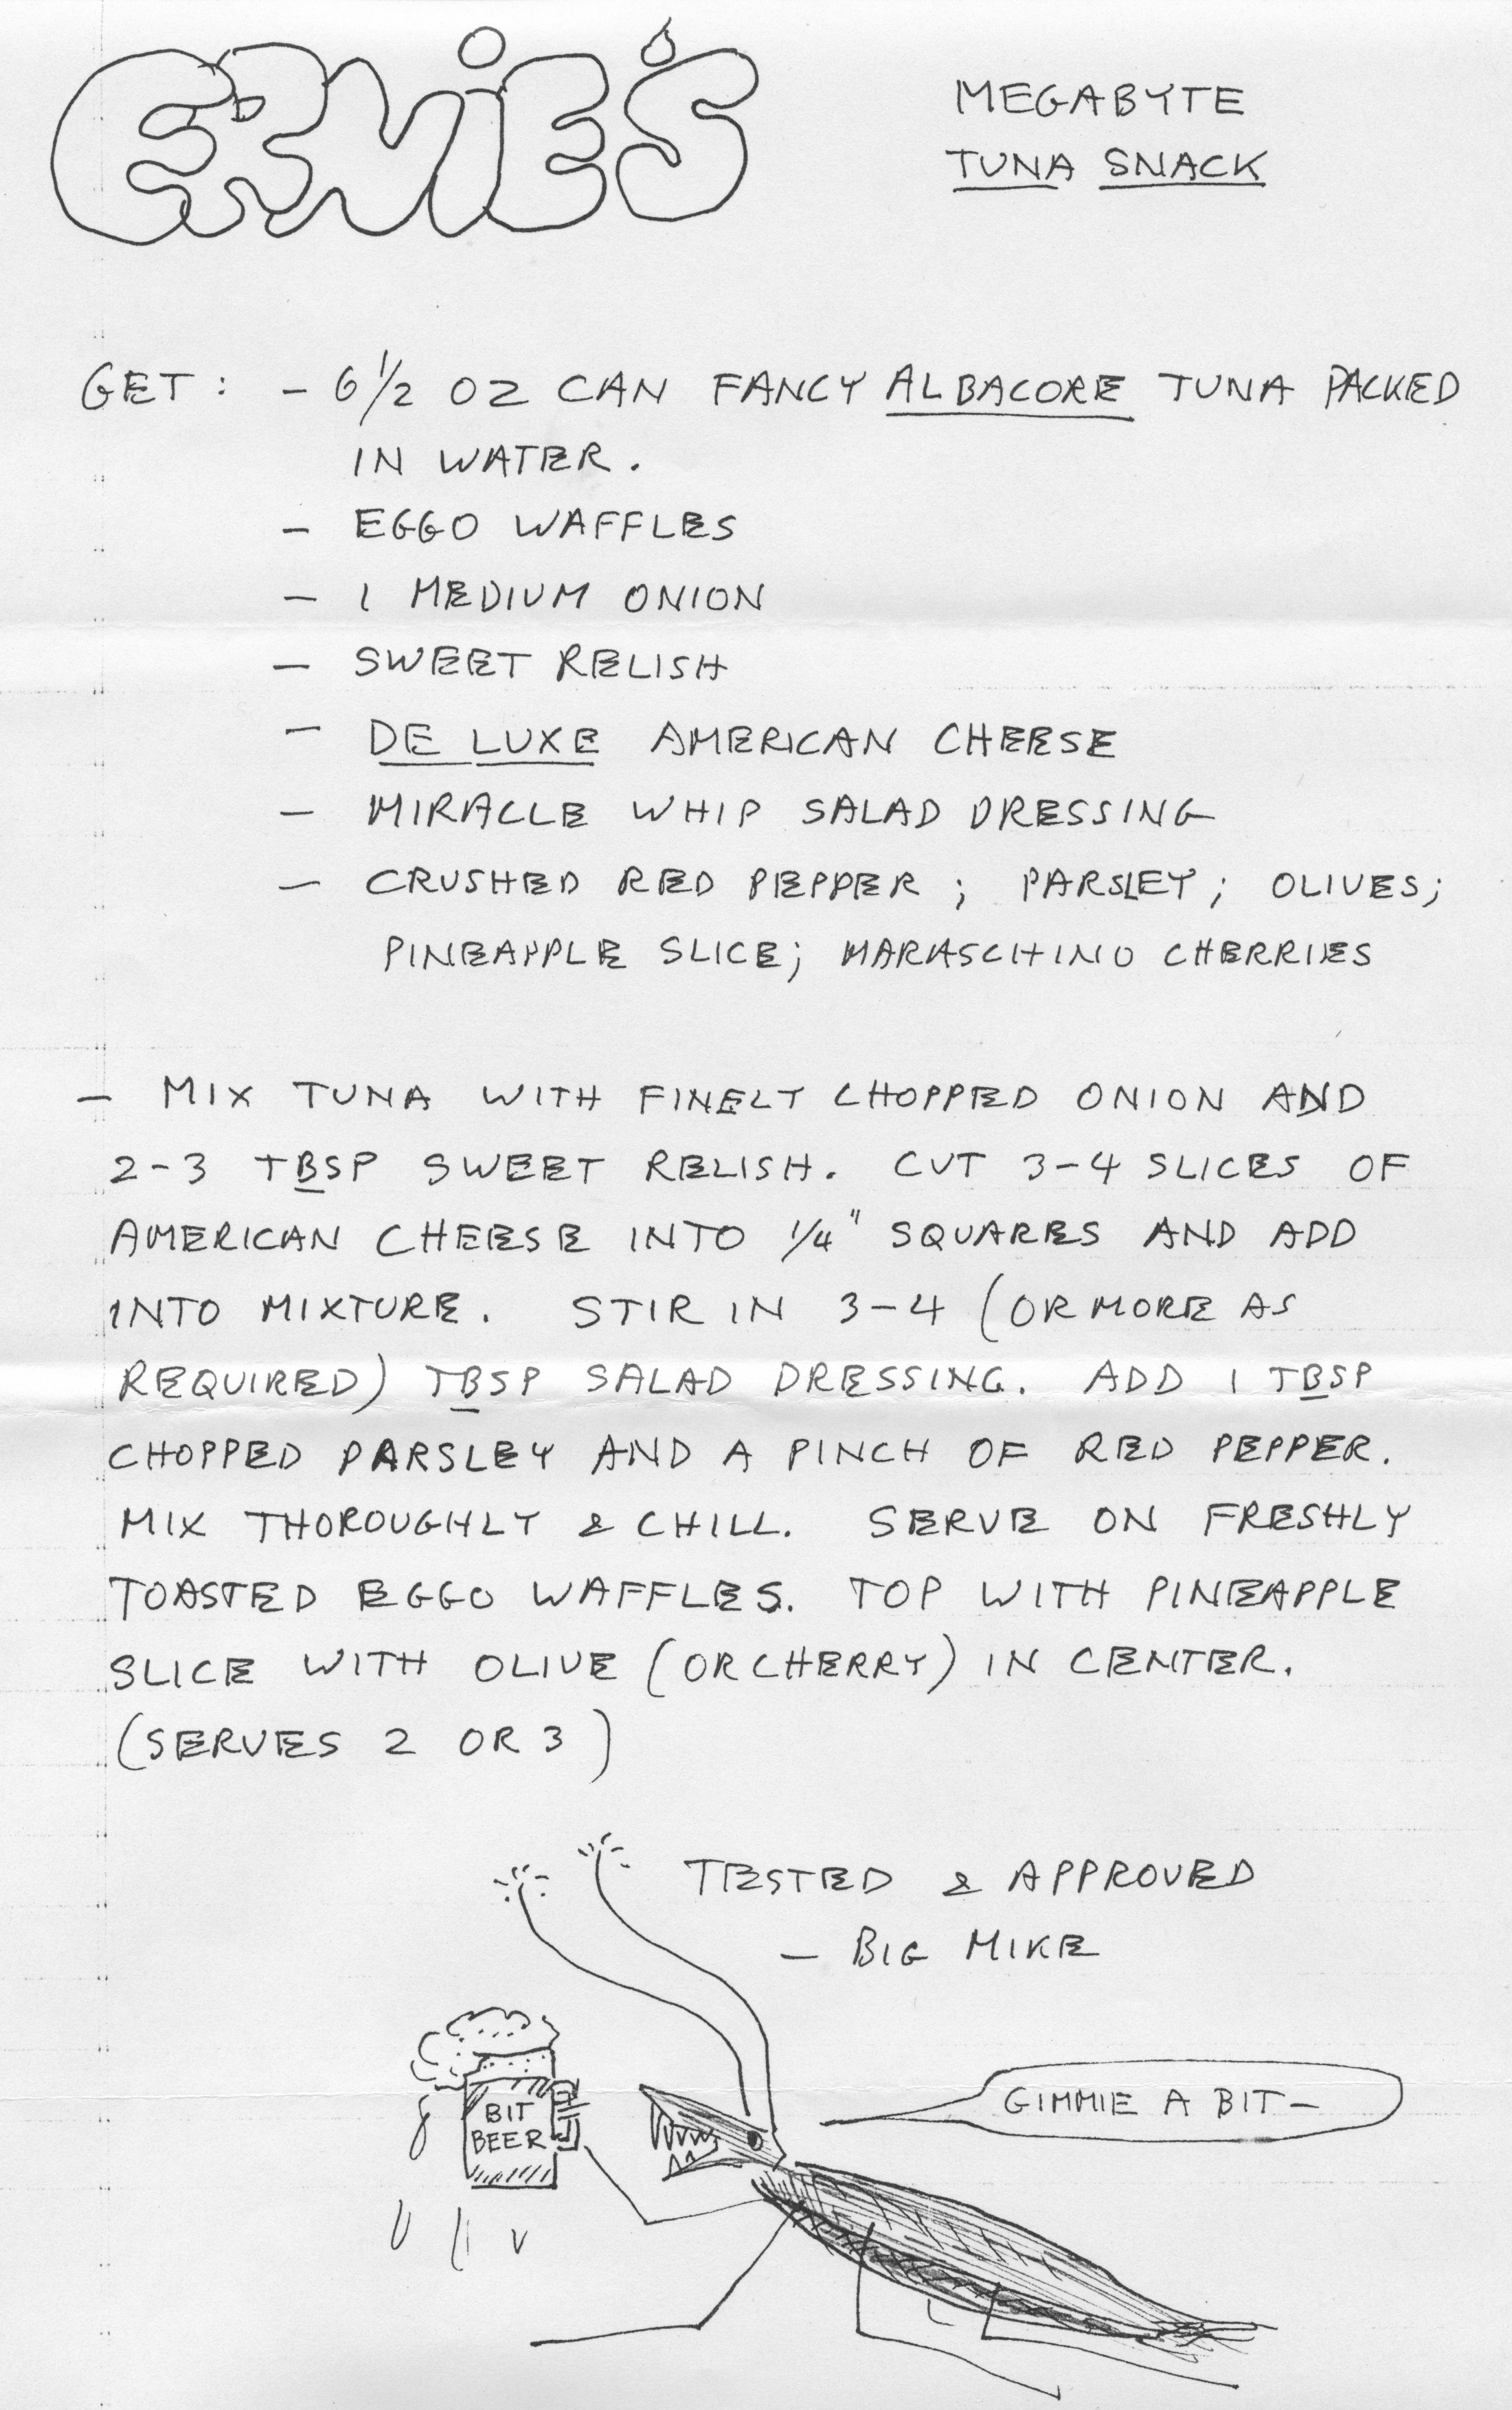 ERNIE'S
MEGABYTE
TUNA SNACK
GET: - 6 1/2 OZ CAN FANCY ALBACORE TUNA PACKED
IN WATER.
- EGGO WAFFLES
- 1 MEDIUM ONION
- SWEET RELISH
- DE LUXE AMERICAN CHEESE
- MIRACLE WHIP SALAD DRESSING
- CRUSHED RED PEPPER; PARSLEY; OLIVES;
PINEAPPLE SLICE; MARASCHINO CHERRIES
- MIX TUNA WITH FINELY CHOPPED ONION AND
2-3 TBSP SWEET RELISH. CUT 3-4 SLICES OF
AMERICAN CHEESE INTO 1/4" SQUARES AND ADD
INTO MIXTURE. STIR IN 3-4 (OR MORE AS
REQUIRED) TBSP SALAD DRESSING. ADD 1 TBSP
CHOPPED PARSLEY AND A PINCH OF RED PEPPER.
MIX THOROUGHLY & CHILL. SERVE ON FRESHLY
TOASTED EGGO WAFFLES. TOP WITH PINEAPPLE
SLICE WITH OLIVE (OR CHERRY) IN CENTER.
(SERVES 2 OR 3)
TESTED & APPROVED
- BIG MIKE
GIMMIE A BIT-
BIT
BEER